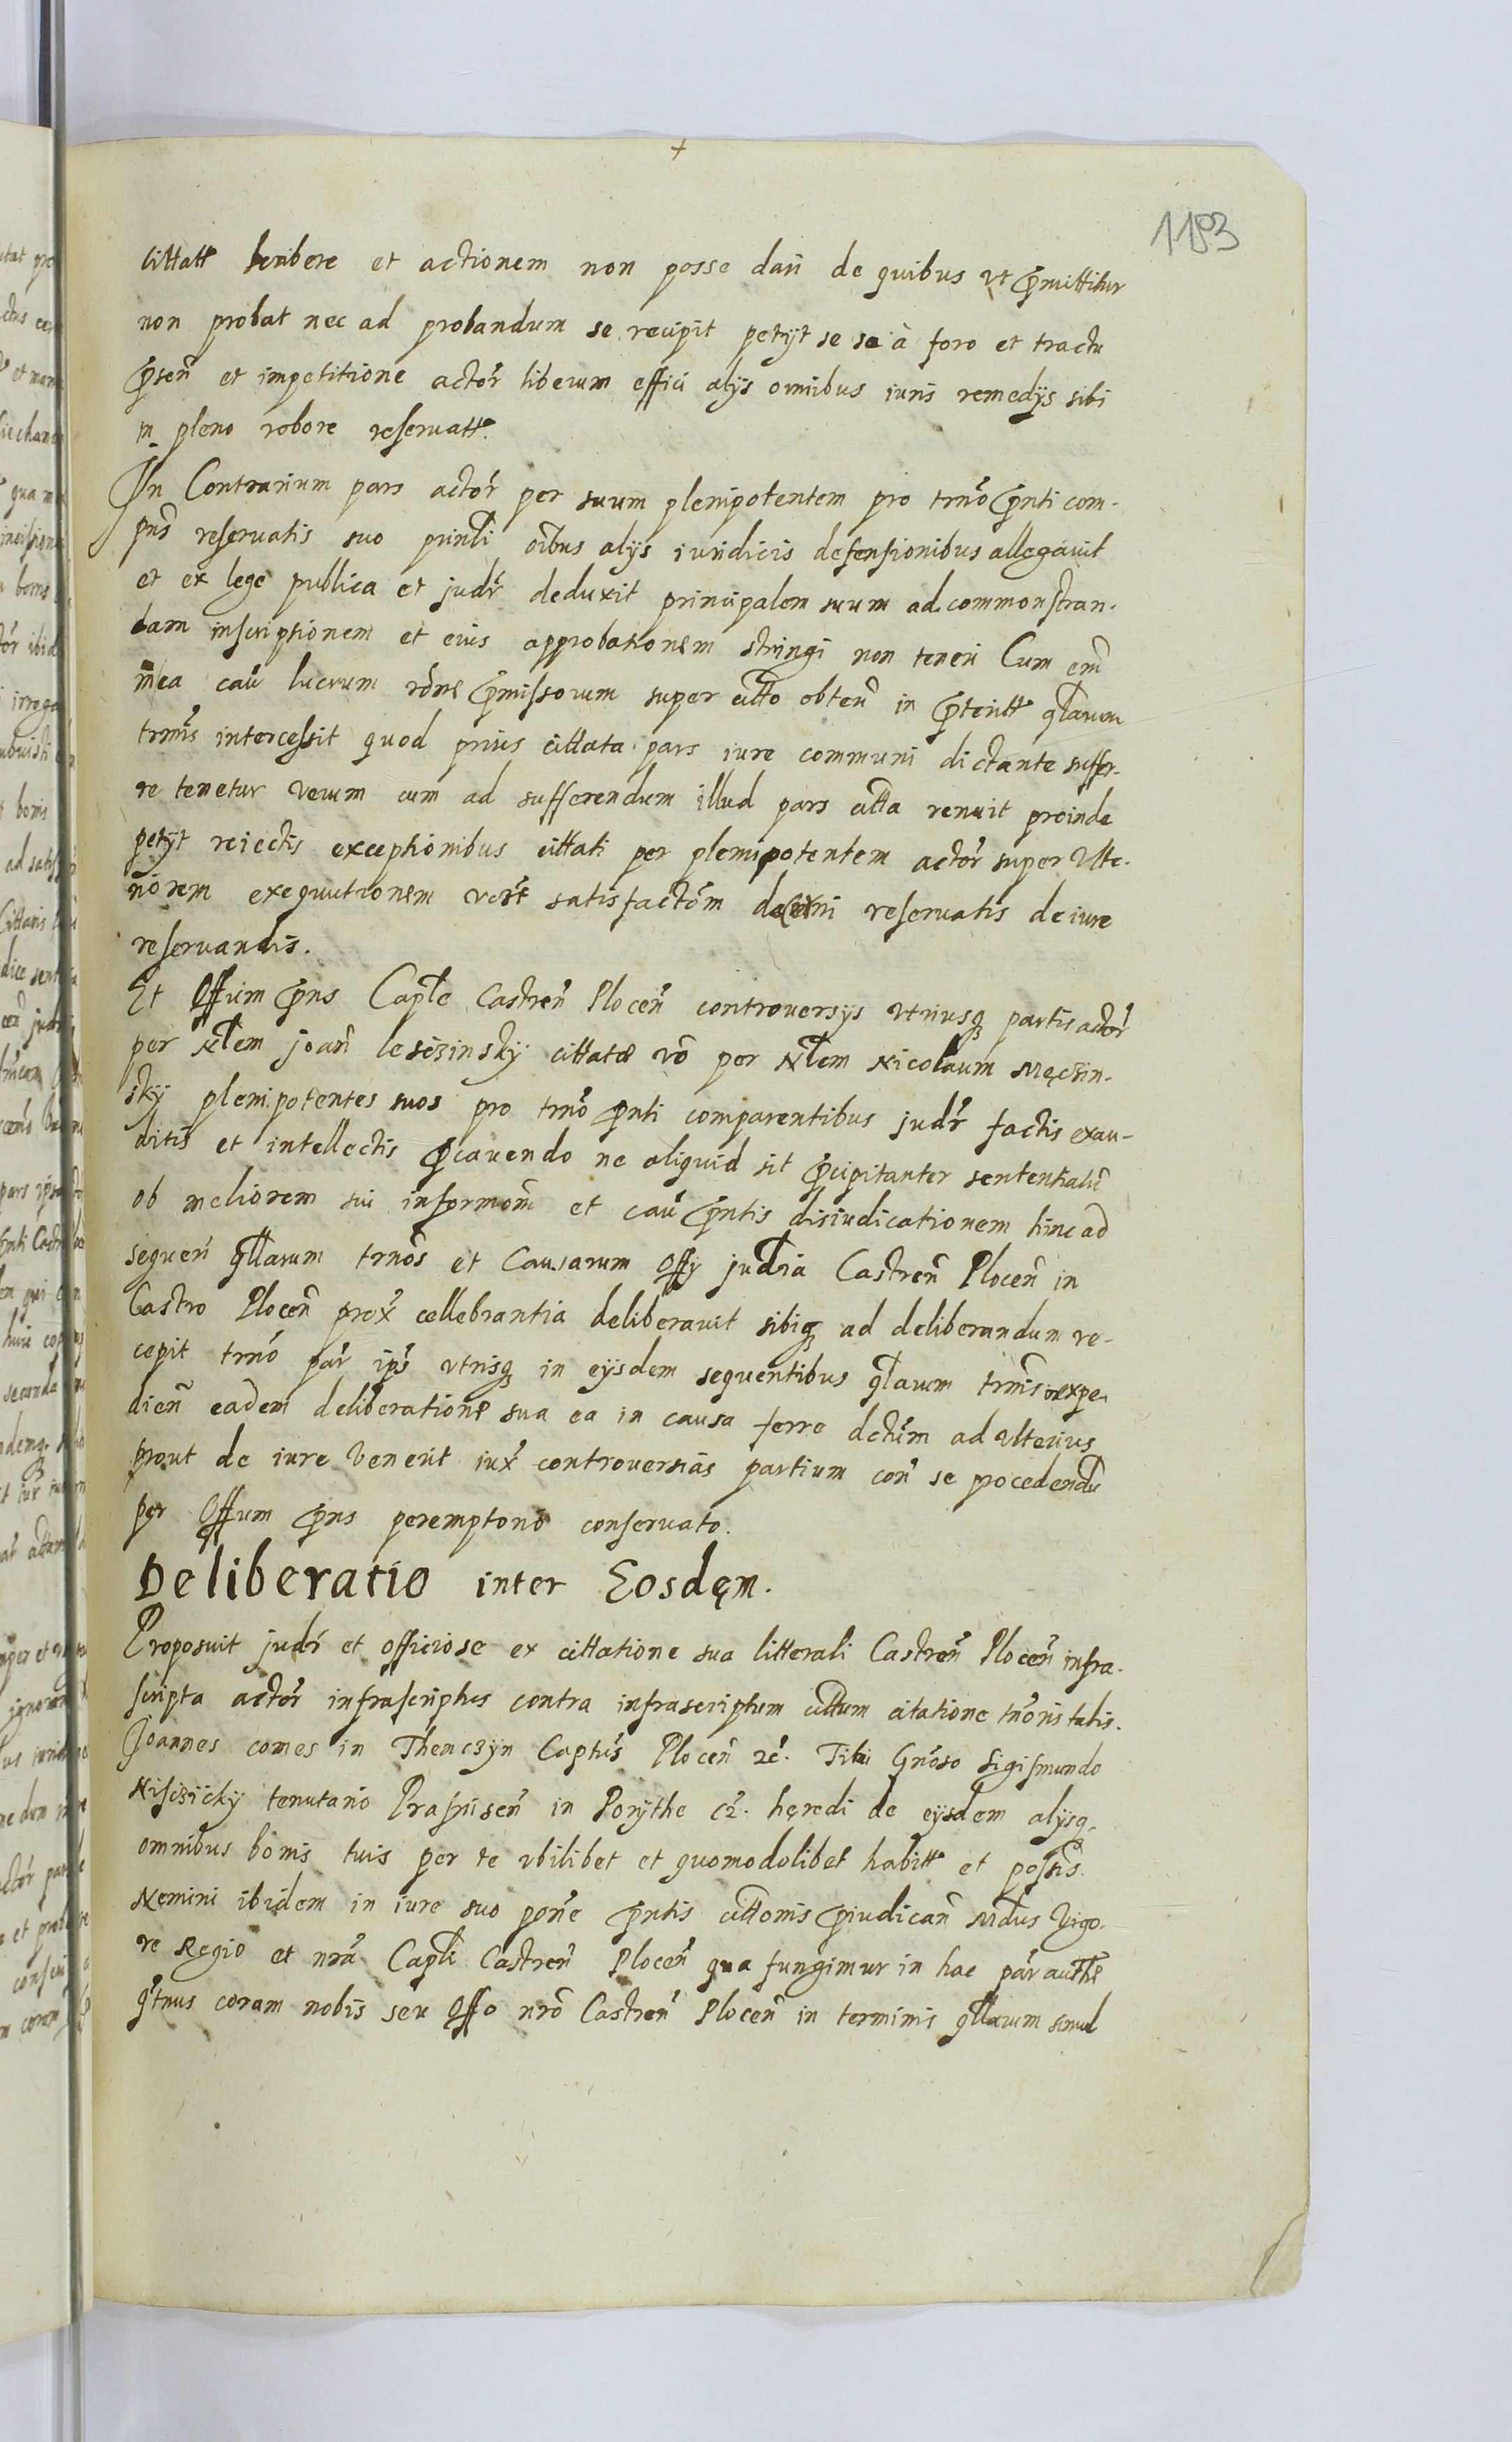 +
1183
cittatt scribere et actionem non posse dari de quibus vt p̃mittitur
non probat nec ad probandum se recipit petijt se se à foro et tractu
p̃señ et impetitione actoř liberum effici alijs omnibus iuris remedijs sibi
in pleno robore reseruatt.
In Contrarium pars actoř per suum plenipotentem pro trño p̃nti com-
pñs reseruatis suo prinłi oĩbus alijs iuridicis defensionibus allegauit
et ex lege publica et judř deduxit principalem suum ad commonstran-
dam inscriptionem et eius approbationem stringi non teneri Cum em̃
in ea caũ lucrum rõne p̃missorum super citto obteñ in p̃teritt qłarum
trmĩs intercessit quod prius cittata pars iure communi dictante suffer-
re tenetur verum cum ad sufferendum illud pars citta renuit proinde
petijt reiectis exceptionibus cittati per plenipotentem actoř super vlte-
riorem exequutionem satisfactõm decerni reseruatis de iure
reseruandis.
Et Offium p̃ns Capłe Castreñ Ploceñ controuersys vtriusq partis actoř
per Nłem joañ lesczinsky cittatæ võ per Nłem Nicolaum Męczin-
sky plenipotentes suos pro trño p̃nti comparentibus judř factis exau-
ditis et intellectis p̃cauendo ne aliquid sit p̃cipitanter sententiatũ
ob meliorem sui informõm et caũ p̃ntis disiudicationem hinc ad
sequeñ qłłarum trnõs et Causarum Offy judłia Castreñ Ploceñ in
Castro Ploceñ prox̃ cellebrantia deliberauit sibiq ad deliberandum re-
cepit trnõ pař ipš vtrisq in eysdem sequentibus qłarum trmĩs expe-
dieñ eadem deliberatione sua ea in causa ferre dctũm ad vlterius
prout de iure venerit iux̃ controuersias partium coñ se procedendũ
per Offium p̃ns peremptorio conseruato.
Deliberatio inter Eosdęm.
Proposuit judř et officiose ex cittatione sua litterali Castreñ Ploceñ infra-
scripta actoř infrascriptus contra infrascriptum cittum citatione tñoris talis.
Joannes comes in Thenczyn Captũs Ploceñ zč. Tibi Gnõso Sigismundo
Nisczicky tenutario Prasniseñ in Porythe cz. hęredi de eysdem alysq
omnibus bonis tuis per te vbilibet et quomodolibet habitt et possis.
Nemini ibidem in iure suo põne p̃ntis cittonis p̃iudicañ Mdus Vigo-
re Regio et nrã Capłi Castreñ Ploceñ qua fungimur in hac pař autthe
q̃tnus coram nobis seu Offo nrõ Castreñ Ploceñ in terminis qłłarum simul